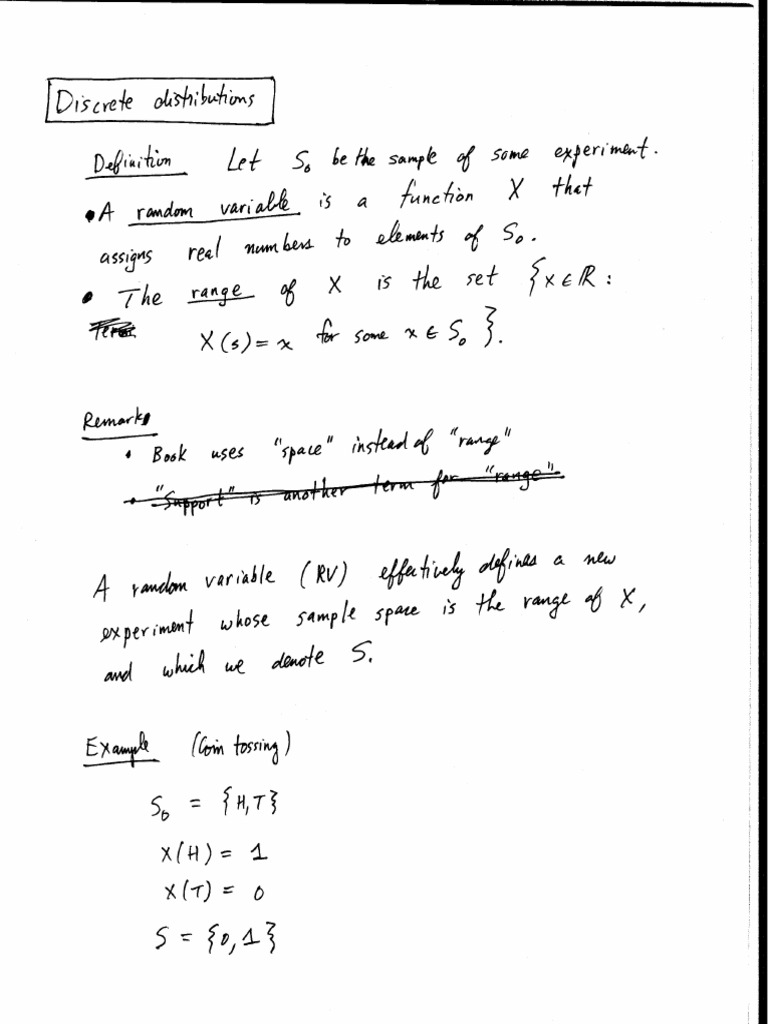 Discrete distributions
Definition Let S₀ be the sample of some experiment.
• A random variable is a function X that
assigns real numbers to elements of S₀.
• The range of X is the set {x ∈ ℝ :
Term X(s) = x for some x ∈ S₀}.
Remarks
• Book uses "space" instead of "range"
• "Support" is another term for "range".
A random variable (RV) effectively defines a new
experiment whose sample space is the range of X,
and which we denote S.
Example (Coin tossing)
S₀ = {H,T}
X(H) = 1
X(T) = 0
S = {0,1}